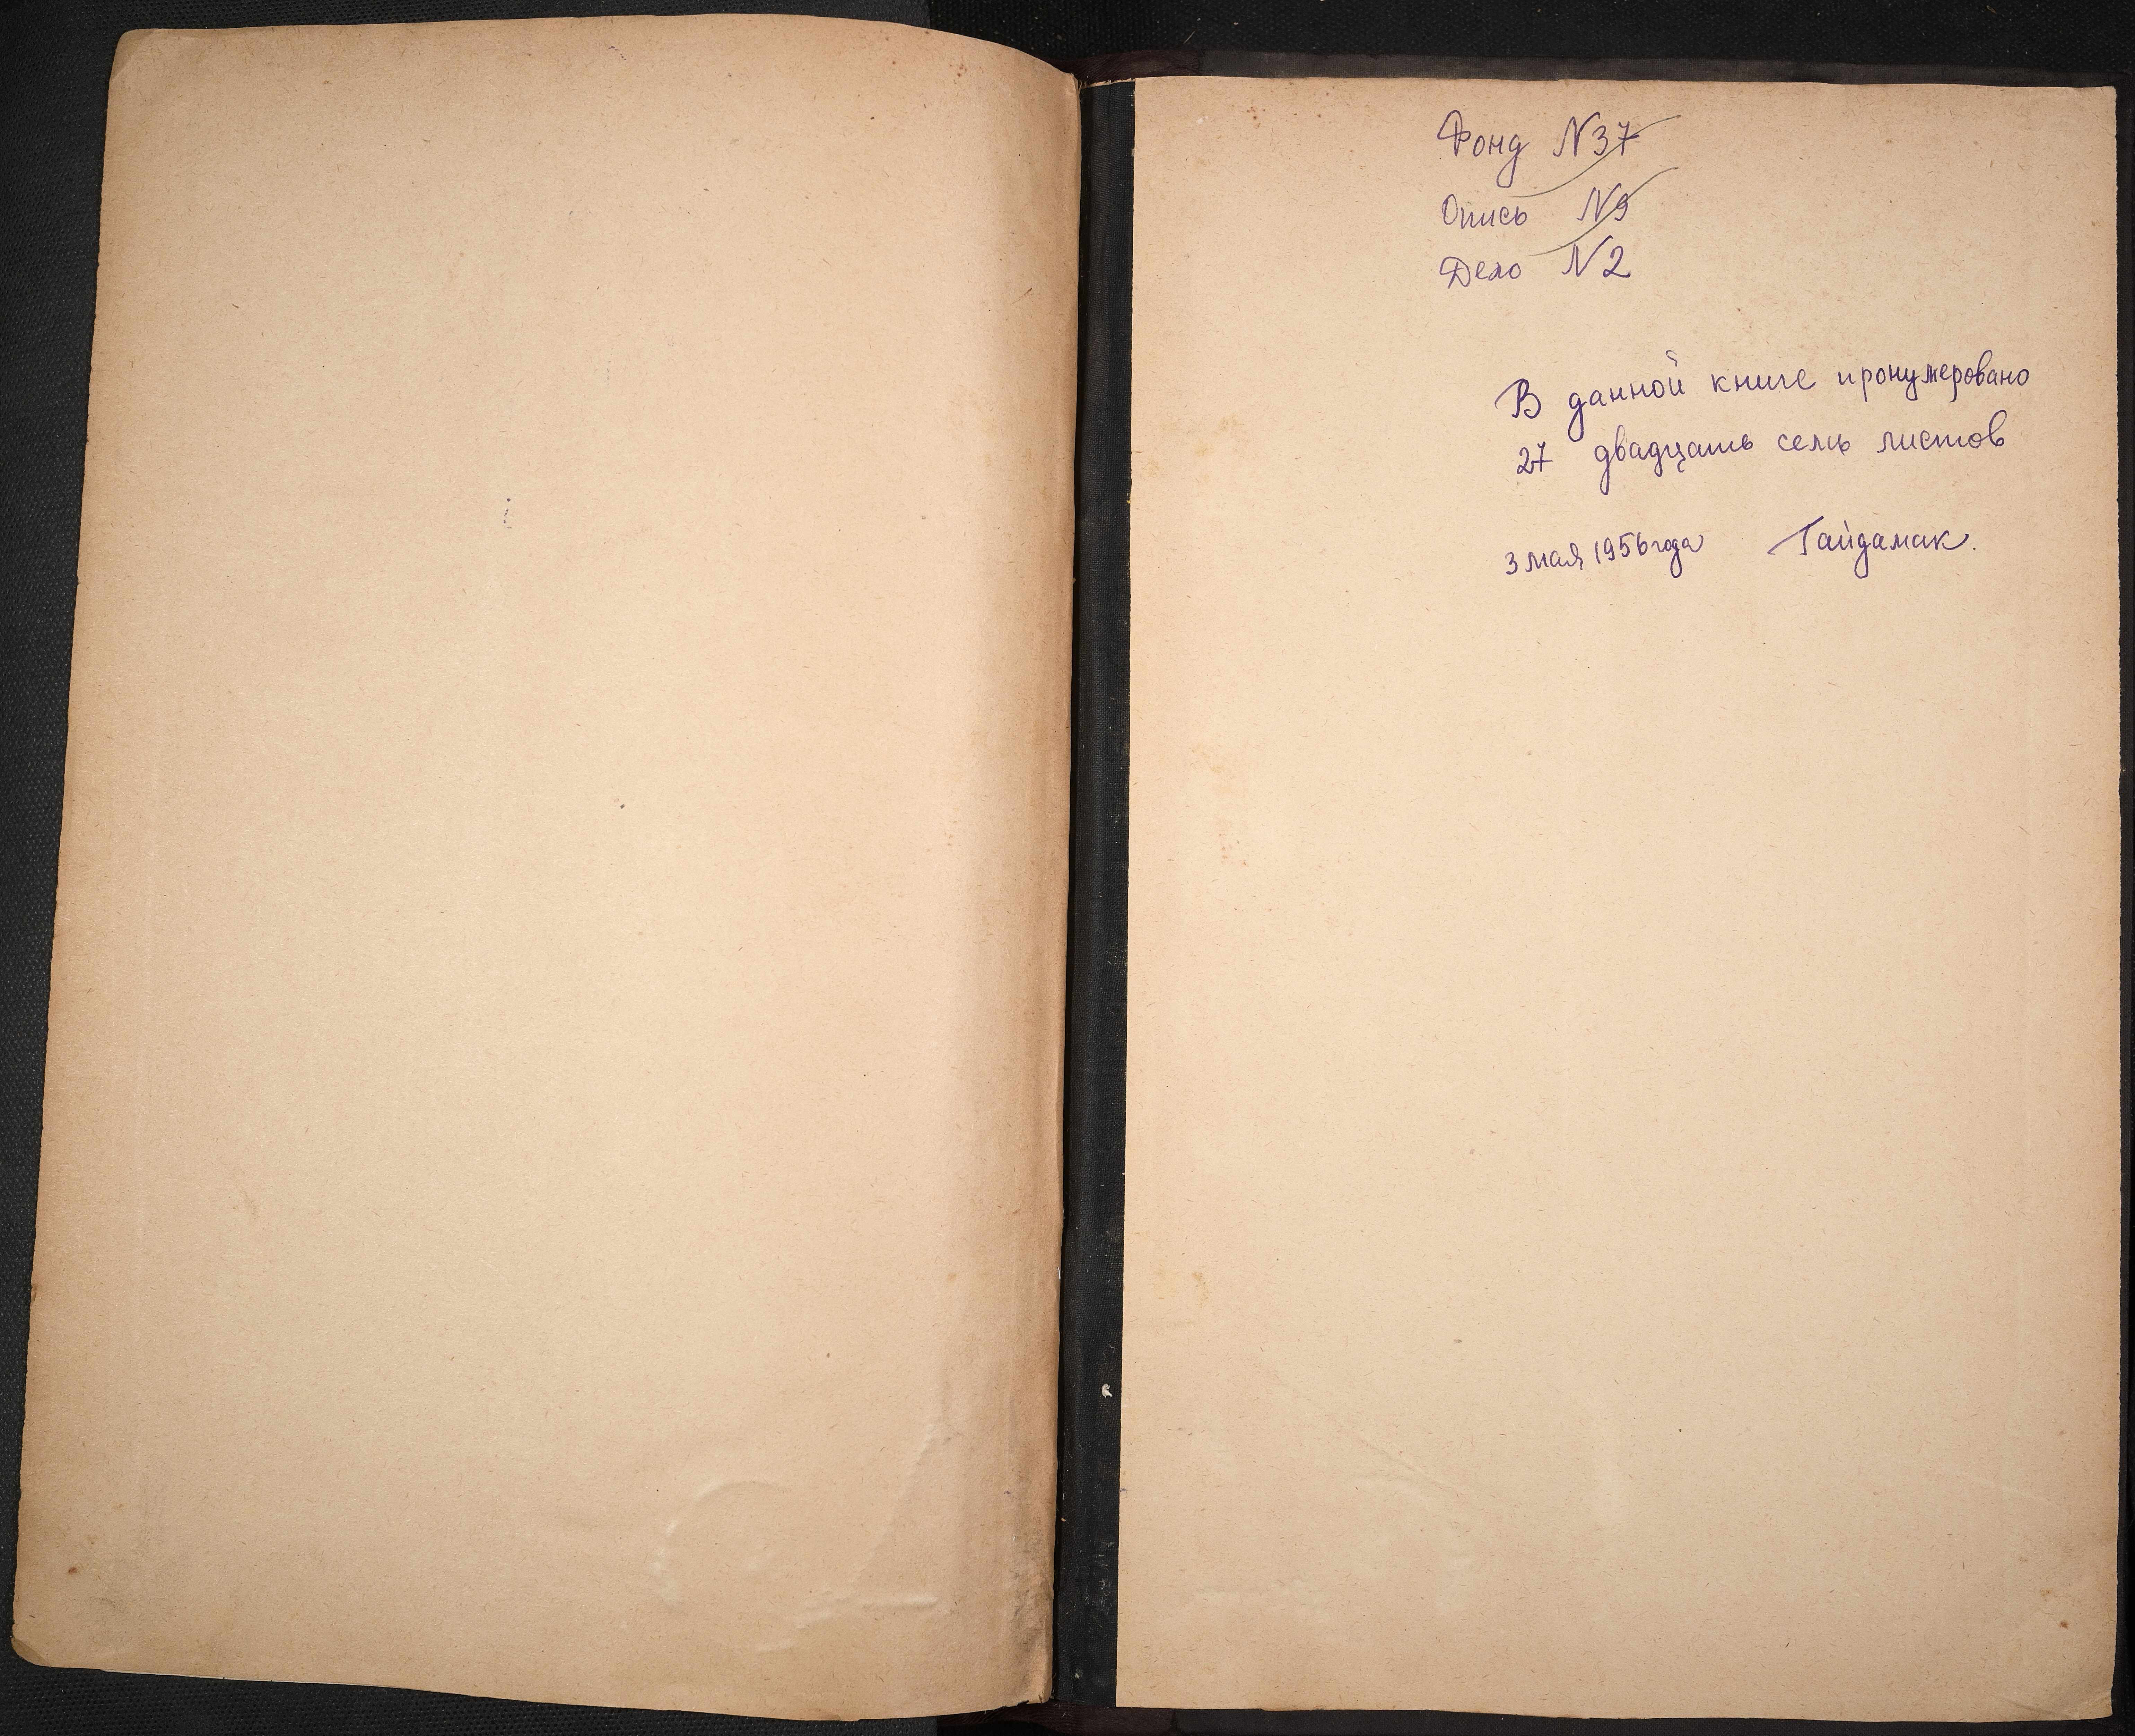 Фонд N37
Опись N9
Дело N2
В данной книге пронумеровано
27 двадцать семь листов
3 мая 1956 года Гайдамак.